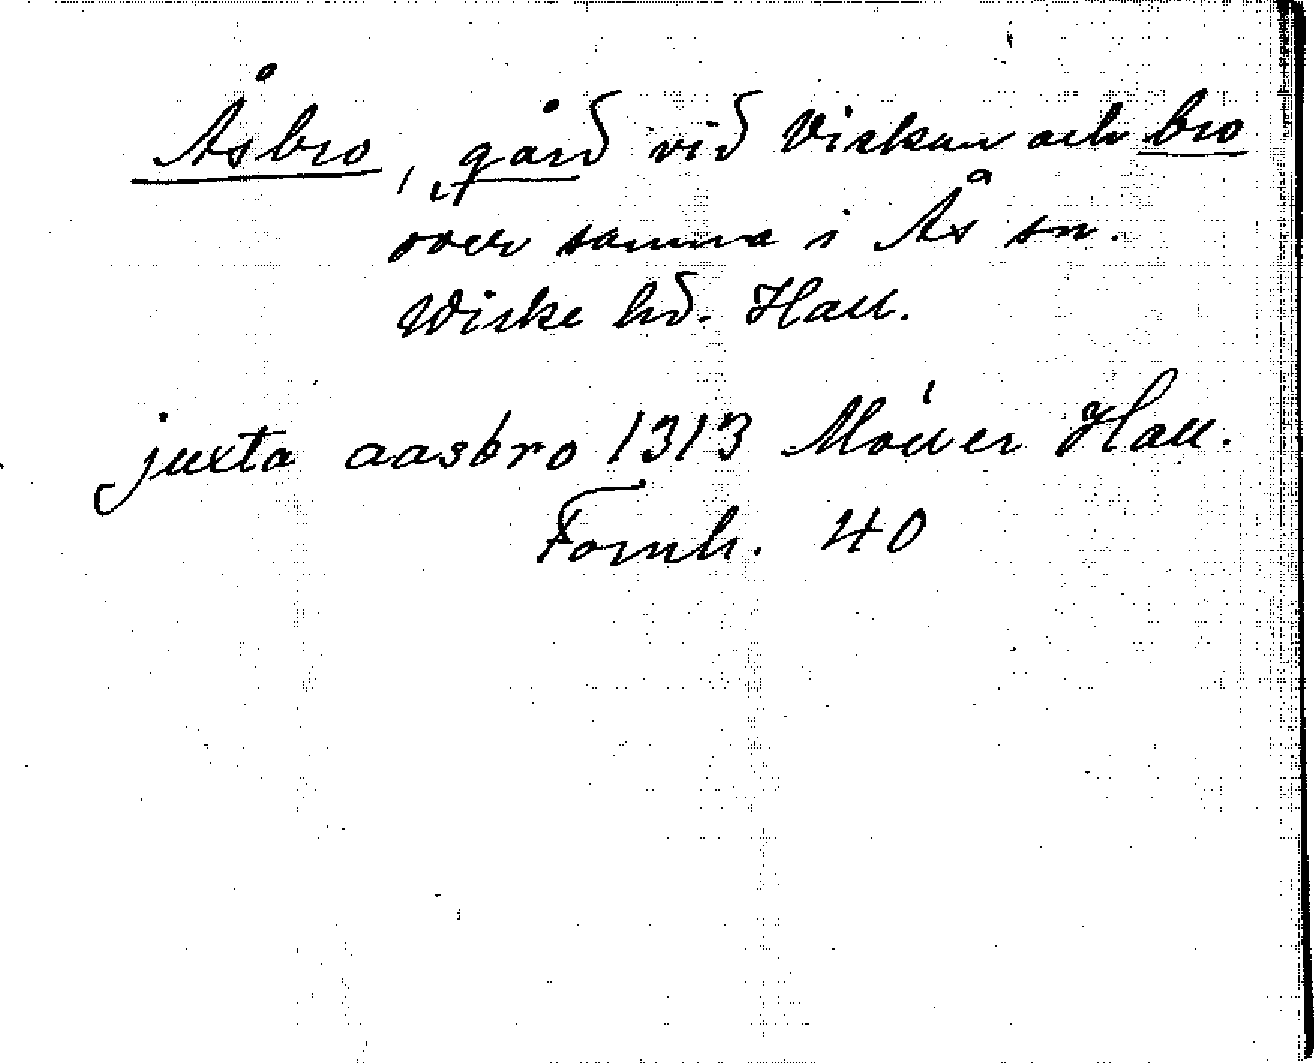 Åsbro, gård vid Viskan och bro
över samma i Ås sn.
Wiske hd. Hall.
juxta aasbro 1313 Möller Hall.
Fornh. 40